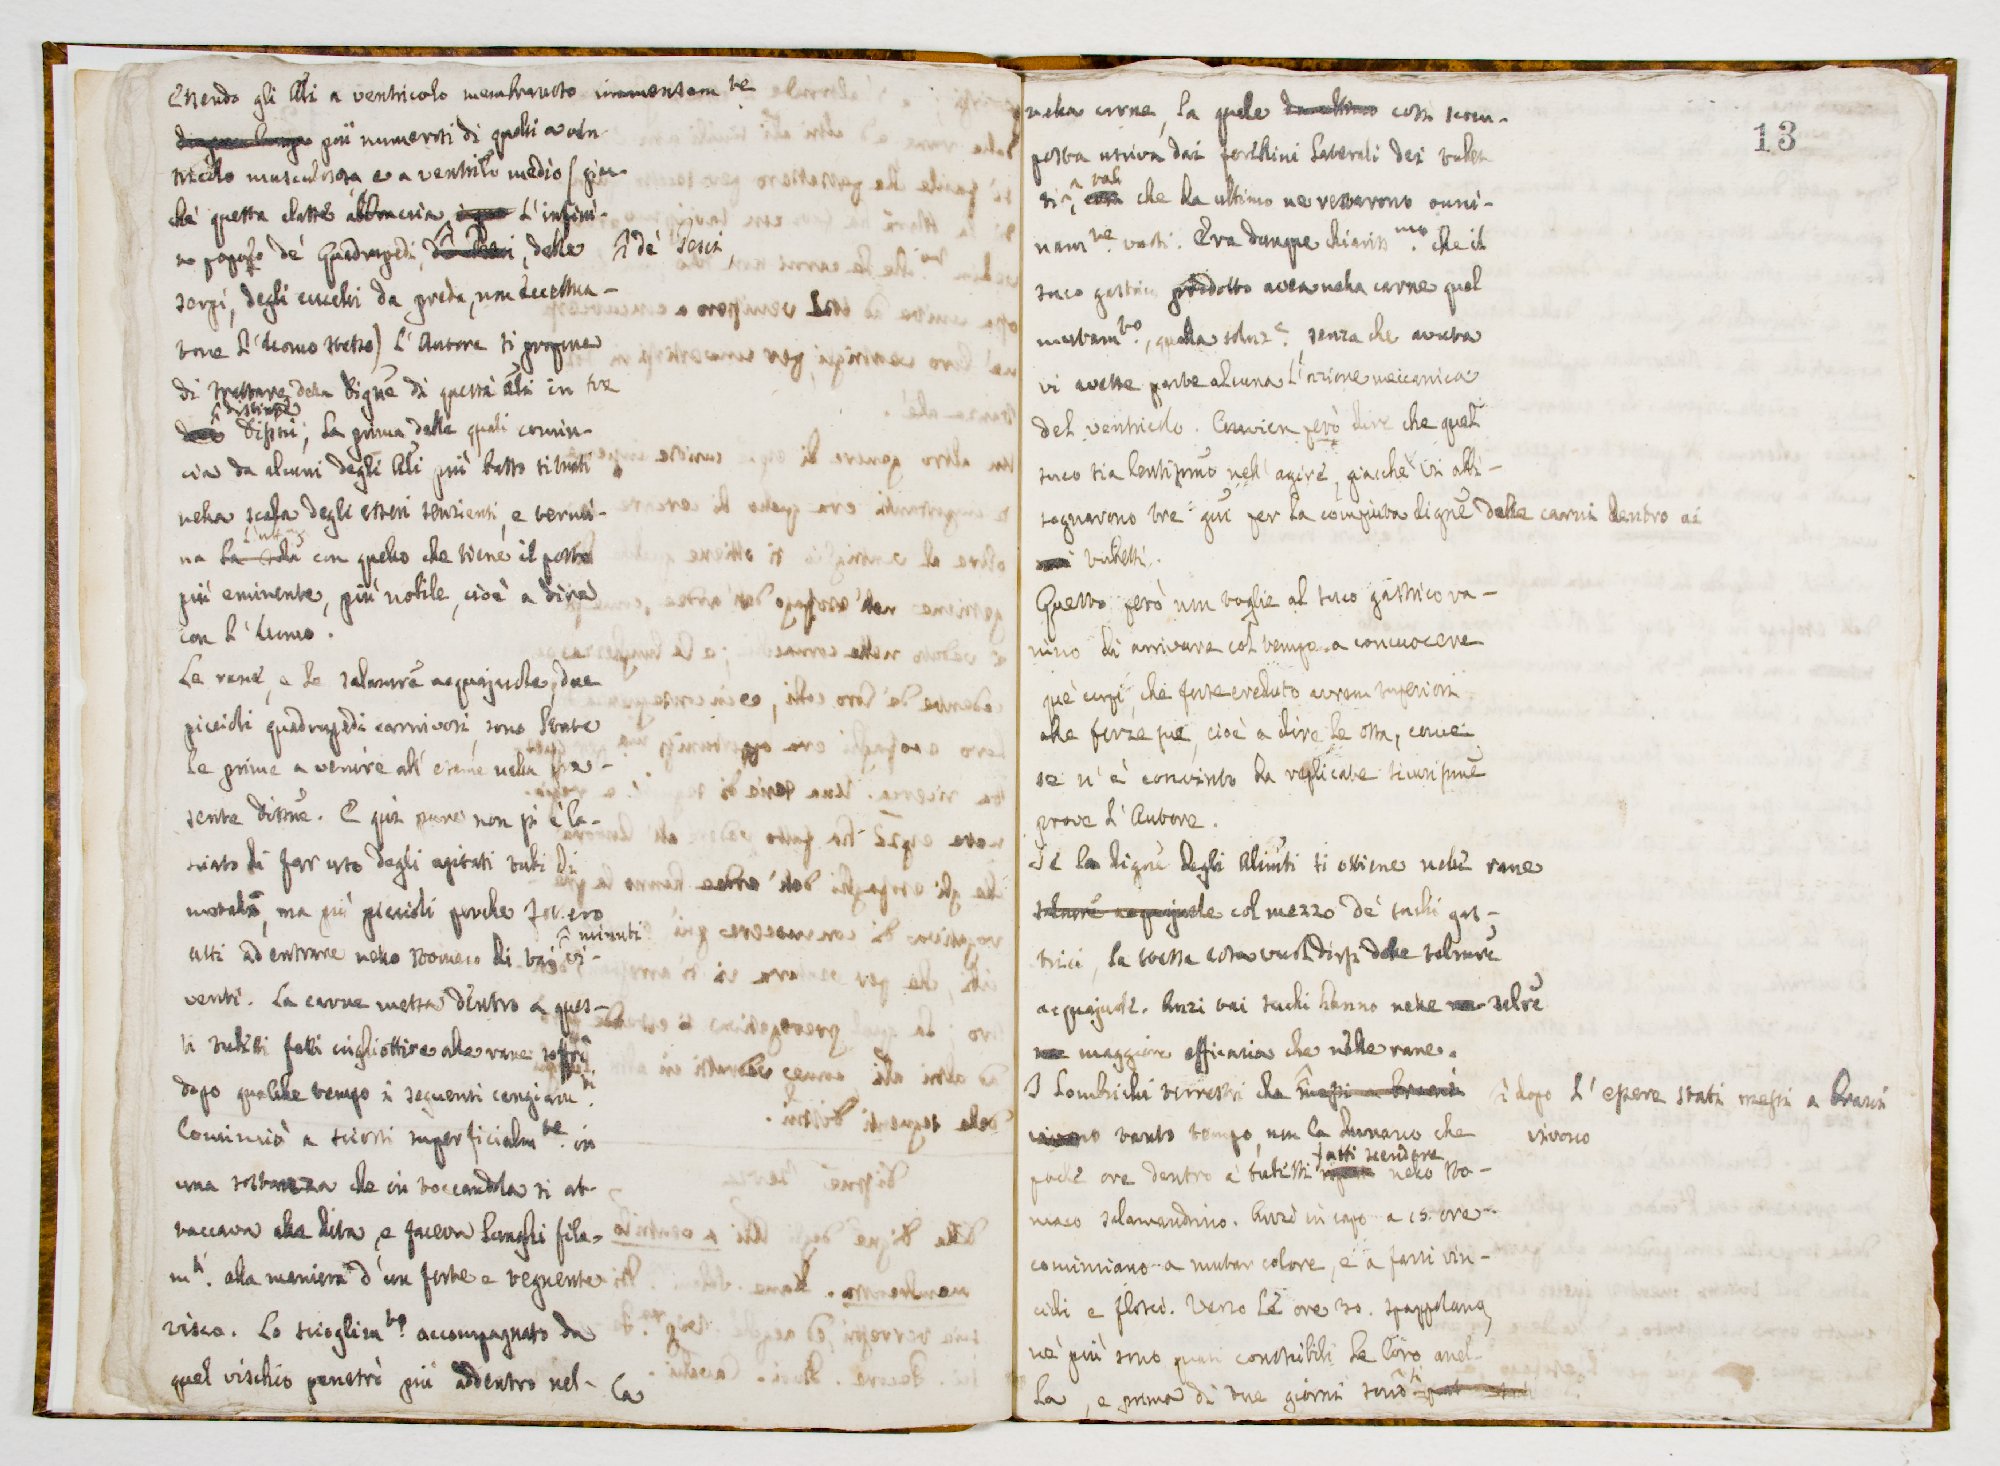 Essendo gli Ali a ventricolo membranoso immensam.te
più numerosi di quelli a ven-
tricolo musculosa e a ventrilo medio (giac-
chè questa classe abbraccia, L'infini-
to popolo de' Quadrupedi, de' Pesci, delle
serpi, degli uccelli da preda, non eccettua-
tone L'Uomo stesso) L'Autore si propone
di trattare della Digne di questi Ali in tre
distinte Dissni; La prima delle quali comin-
cia da alcuni degli Ali più basso situati
nella scala degli esseri senzienti, e termi-
na con quello che tiene il posto
più eminente, più nobile, cioè a dire
con L'Uomo.
Le rane, e le salamre acquajuole, due
piccioli quadrupedi carnivori sono state
le prime a venire all' esame nella pre-
sente Dissne. E qui pure non si è la-
sciato di far uso degli usitati tubi di
metallo, ma più piccioli perchè fossero
atti ad entrare nello stomaco di tai minuti vi-
venti. La carne messa dentro a ques-
ti tubetti fatti inghiottire alle rane soffrì
dopo qualche tempo i seguenti cangiam.ti
Cominciò a sciorsi superficialm.te in
una sostanza che in toccandola si at-
taccava alle dita, e faceva lunghi fila-
m.ti alla maniera d'un forte e tegnente
visco. Lo scioglim.to accompagnato da
quel vischio penetrò più addentro nel-
la
13
nella carne, la quale così scom-
posta usciva dai forellini laterali dei tubet-
ti, tali che da ultimo ne restarono onni-
nam.te voti. Era dunque chiariss.mo che il
suco gastrico prodotto avea nella carne quel
mutam.to, quella soluz.e senza che avuta
vi avesse parte alcuna L'azione meccanica
del ventricolo. Convien però dire che quel
suco sia lentissimo nell' agire, giacchè vi abbi-
sognarono tre gni per la compiuta digne delle carni dentro ai
tubetti.
Questo però non toglie al suco gastrico ra-
nino di arrivare col tempo a concuocere
que' corpi, che forse creduto avrem superiori
alle forze sue, cioè a dire le ossa, come
se n'è convinto da replicate sicurissime
prove L'Autore.
Se la digne degli Alimti si ottiene nelle rane
col mezzo de' suchi gas-
trici, la stessa cosa vuol dirsi delle salamre
acquajuole. Anzi tai suchi hanno nelle salre
maggiore efficacia che nelle rane.
I Lombrichi terrestri che dopo L'essere stati messi a brani vivono
tanto tempo, non la durano che
poche ore dentro a' tubetti fatti scendere nello sto-
maco salamandrino. Anzi in capo a 15. ore
cominciano a mutar colore, e a farsi vin-
cidi e flosci. Verso le ore 30. spappolano,
nè più sono quasi conoscibili le loro anel-
la, e prima di due giorni sono